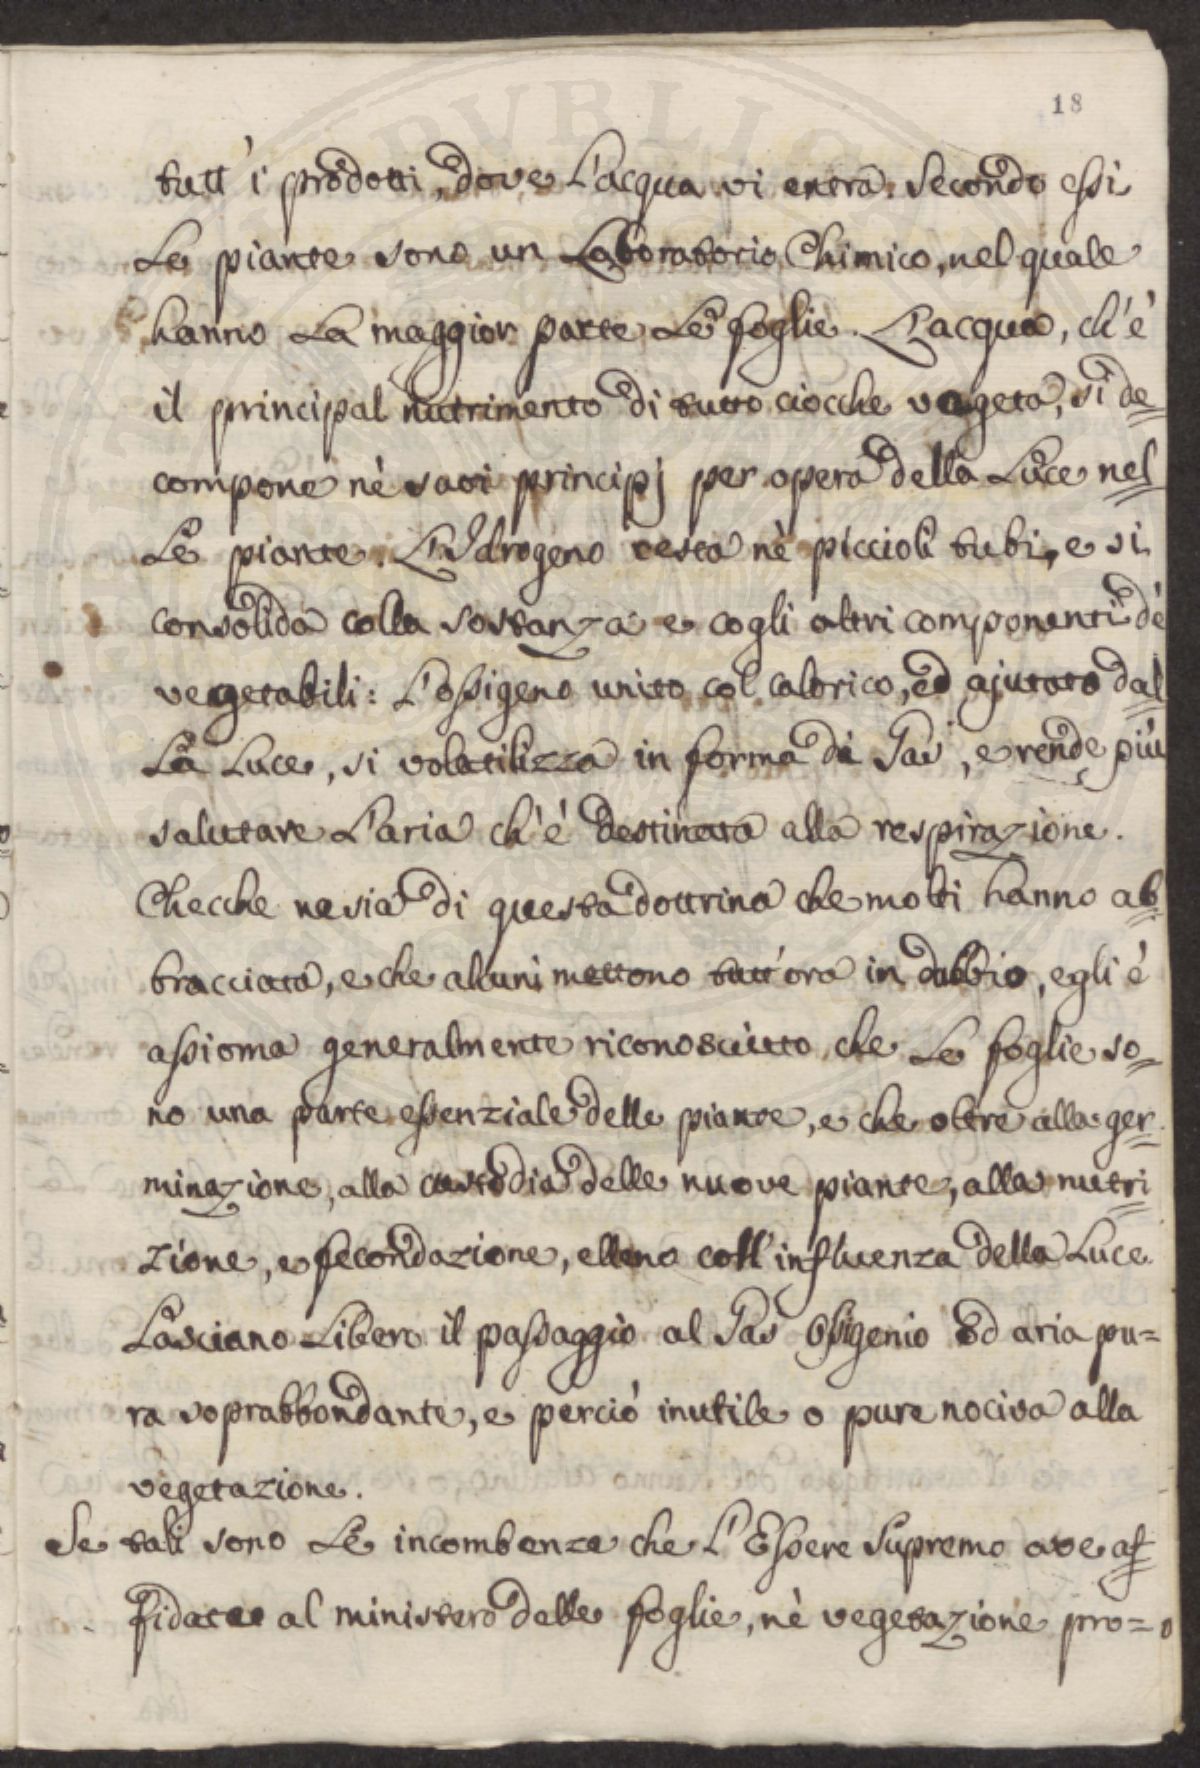 18
tutt' i prodotti, dove L'acqua vi entra. Secondo essi
Le piante sono un Laboratorio Chimico, nel quale
hanno La maggior parte Le foglie. L'acqua, ch'è
il principal nutrimento di tutto ciocche vegeta, si de=
compone nè suoi principj per opera della Luce nel=
Le piante. L'Idrogeno resta nè piccioli tubi, e si
consolida colla sostanza e cogli altri componenti dè
vegetabili: L'ossigeno unito col calorico, ed ajutato dal=
La Luce, si volatilizza in forma di Gas, e rende più
salutare L'aria ch'è destinata alla respirazione.
Checche ne sia di questa dottrina che molti hanno ab=
bracciata, e che alcuni mettono tutt'ora in dubbio, egli è
assioma generalmente riconosciuto che Le foglie so=
no una parte essenziale delle piante, e che oltre alla ger=
minazione, alla custodia delle nuove piante, alla nutri=
zione, e fecondazione, elleno coll'influenza della Luce
Lasciano Libero il passaggio al Gas Ossigenio ed aria pu=
ra soprabbondante, e perciò inutile o pure nociva alla
vegetazione.
Se tali sono Le incombenze che L'Essere Supremo ave af=
fidate al ministero delle foglie, nè vegetazione pro=